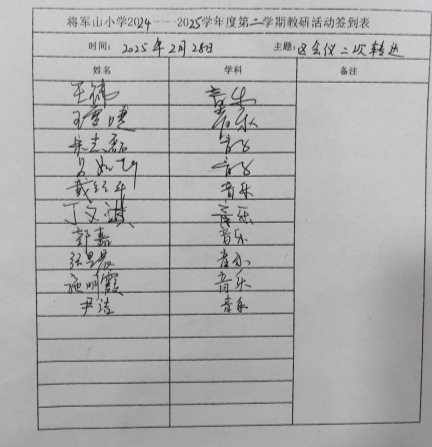 将军山小学2024——2025学年度第二学期教研活动签到表
时间: 2025年2月28日 主题: 区会议二次转达
姓名 学科 备注
王 音乐
音乐
朱志磊 音乐
音乐
戴 音乐
丁文 音乐
郭嘉 音乐
张 音乐
施明霞 音乐
尹洁 音乐